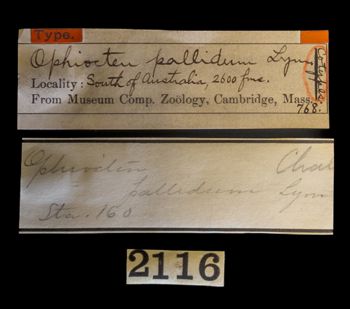 Type.
Ophiocten pallidum Lym.
Locality: South of Australia, 2600 fms.
From Museum Comp. Zoölogy, Cambridge, Mass.
Cotype
768.
Ophiocten Chal
pallidum Lym
Sta. 160
2116